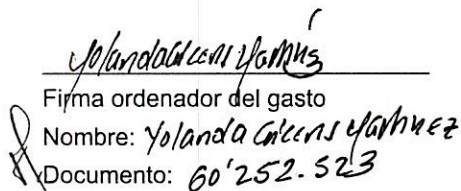 Yolanda Cáceres Martínez
Firma ordenador del gasto
Nombre: Yolanda Cáceres Martínez
Documento: 60'252.523